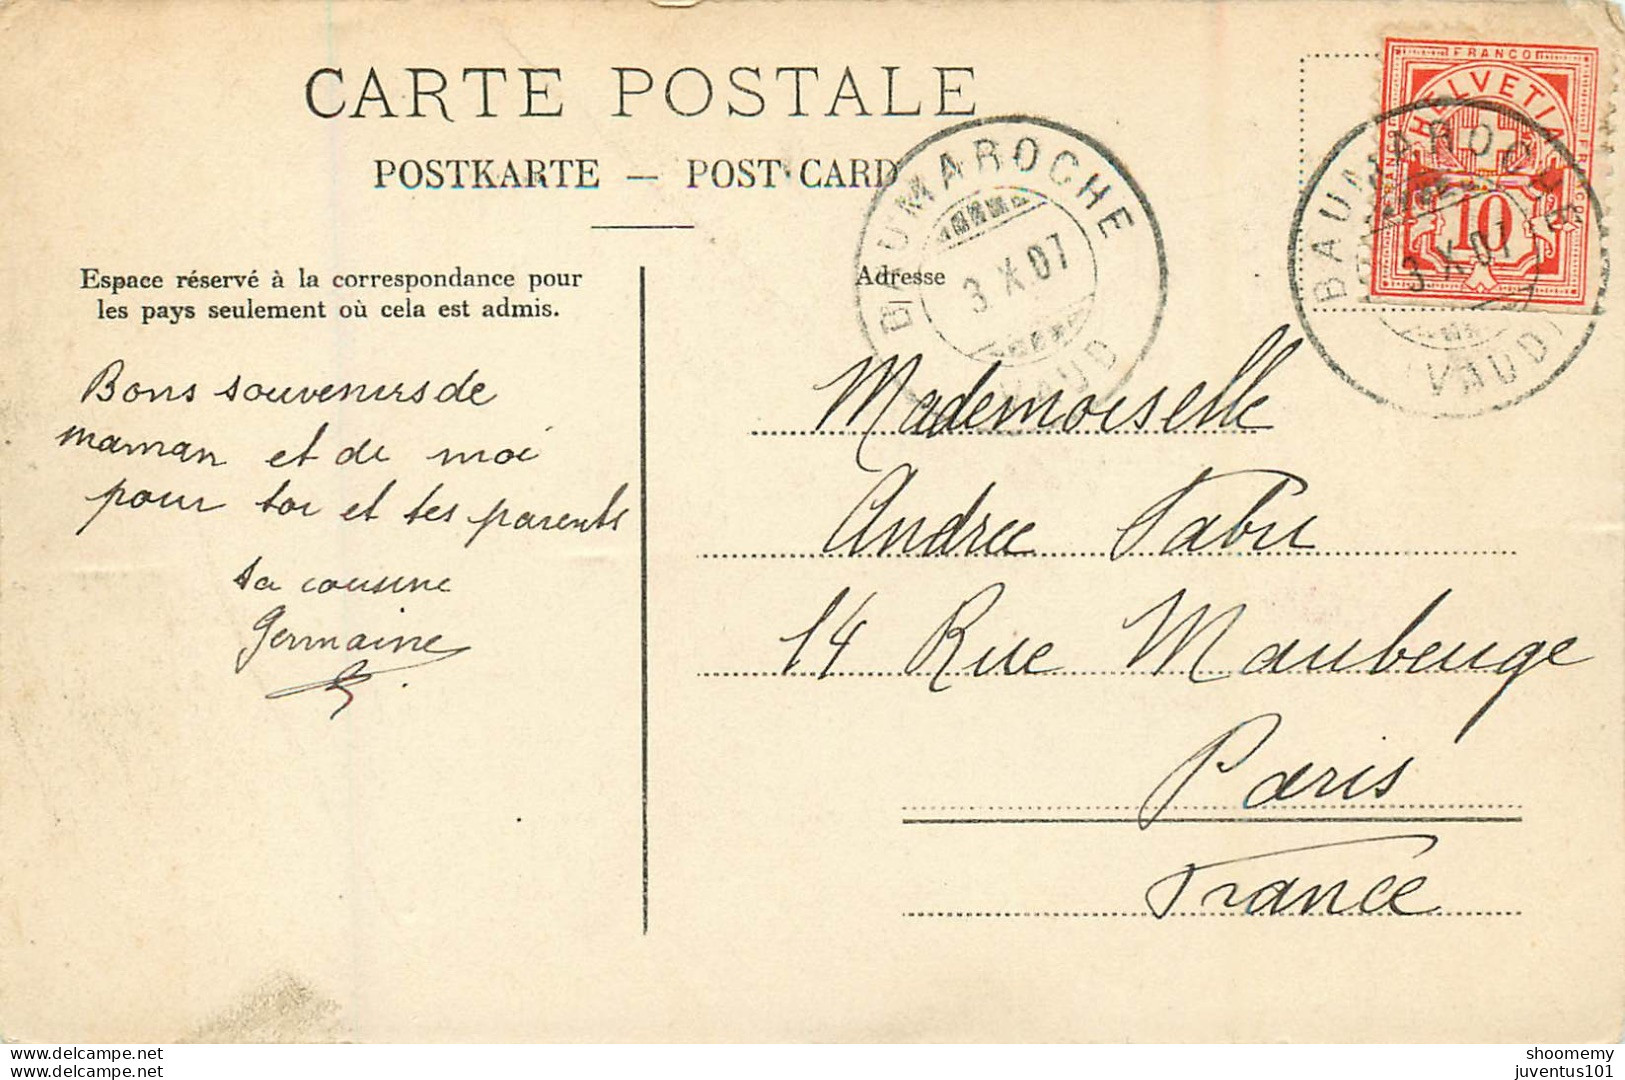 CARTE POSTALE
POSTKARTE — POST CARD
FRANCO
HELVETIA
FRANCO
FRANCO
10
BAUMAROCHE
3 X 07
(VAUD)
BAUMAROCHE
3 X 07
VAUD
Espace réservé à la correspondance pour
les pays seulement où cela est admis.
Bons souvenirs de
maman et de moi
pour toi et tes parents
ta cousine
Germaine
Adresse
Mademoiselle
Andree Fabre
14 Rue Maubeuge
Paris
France
www.delcampe.net
www.delcampe.net
shoomemy
juventus101